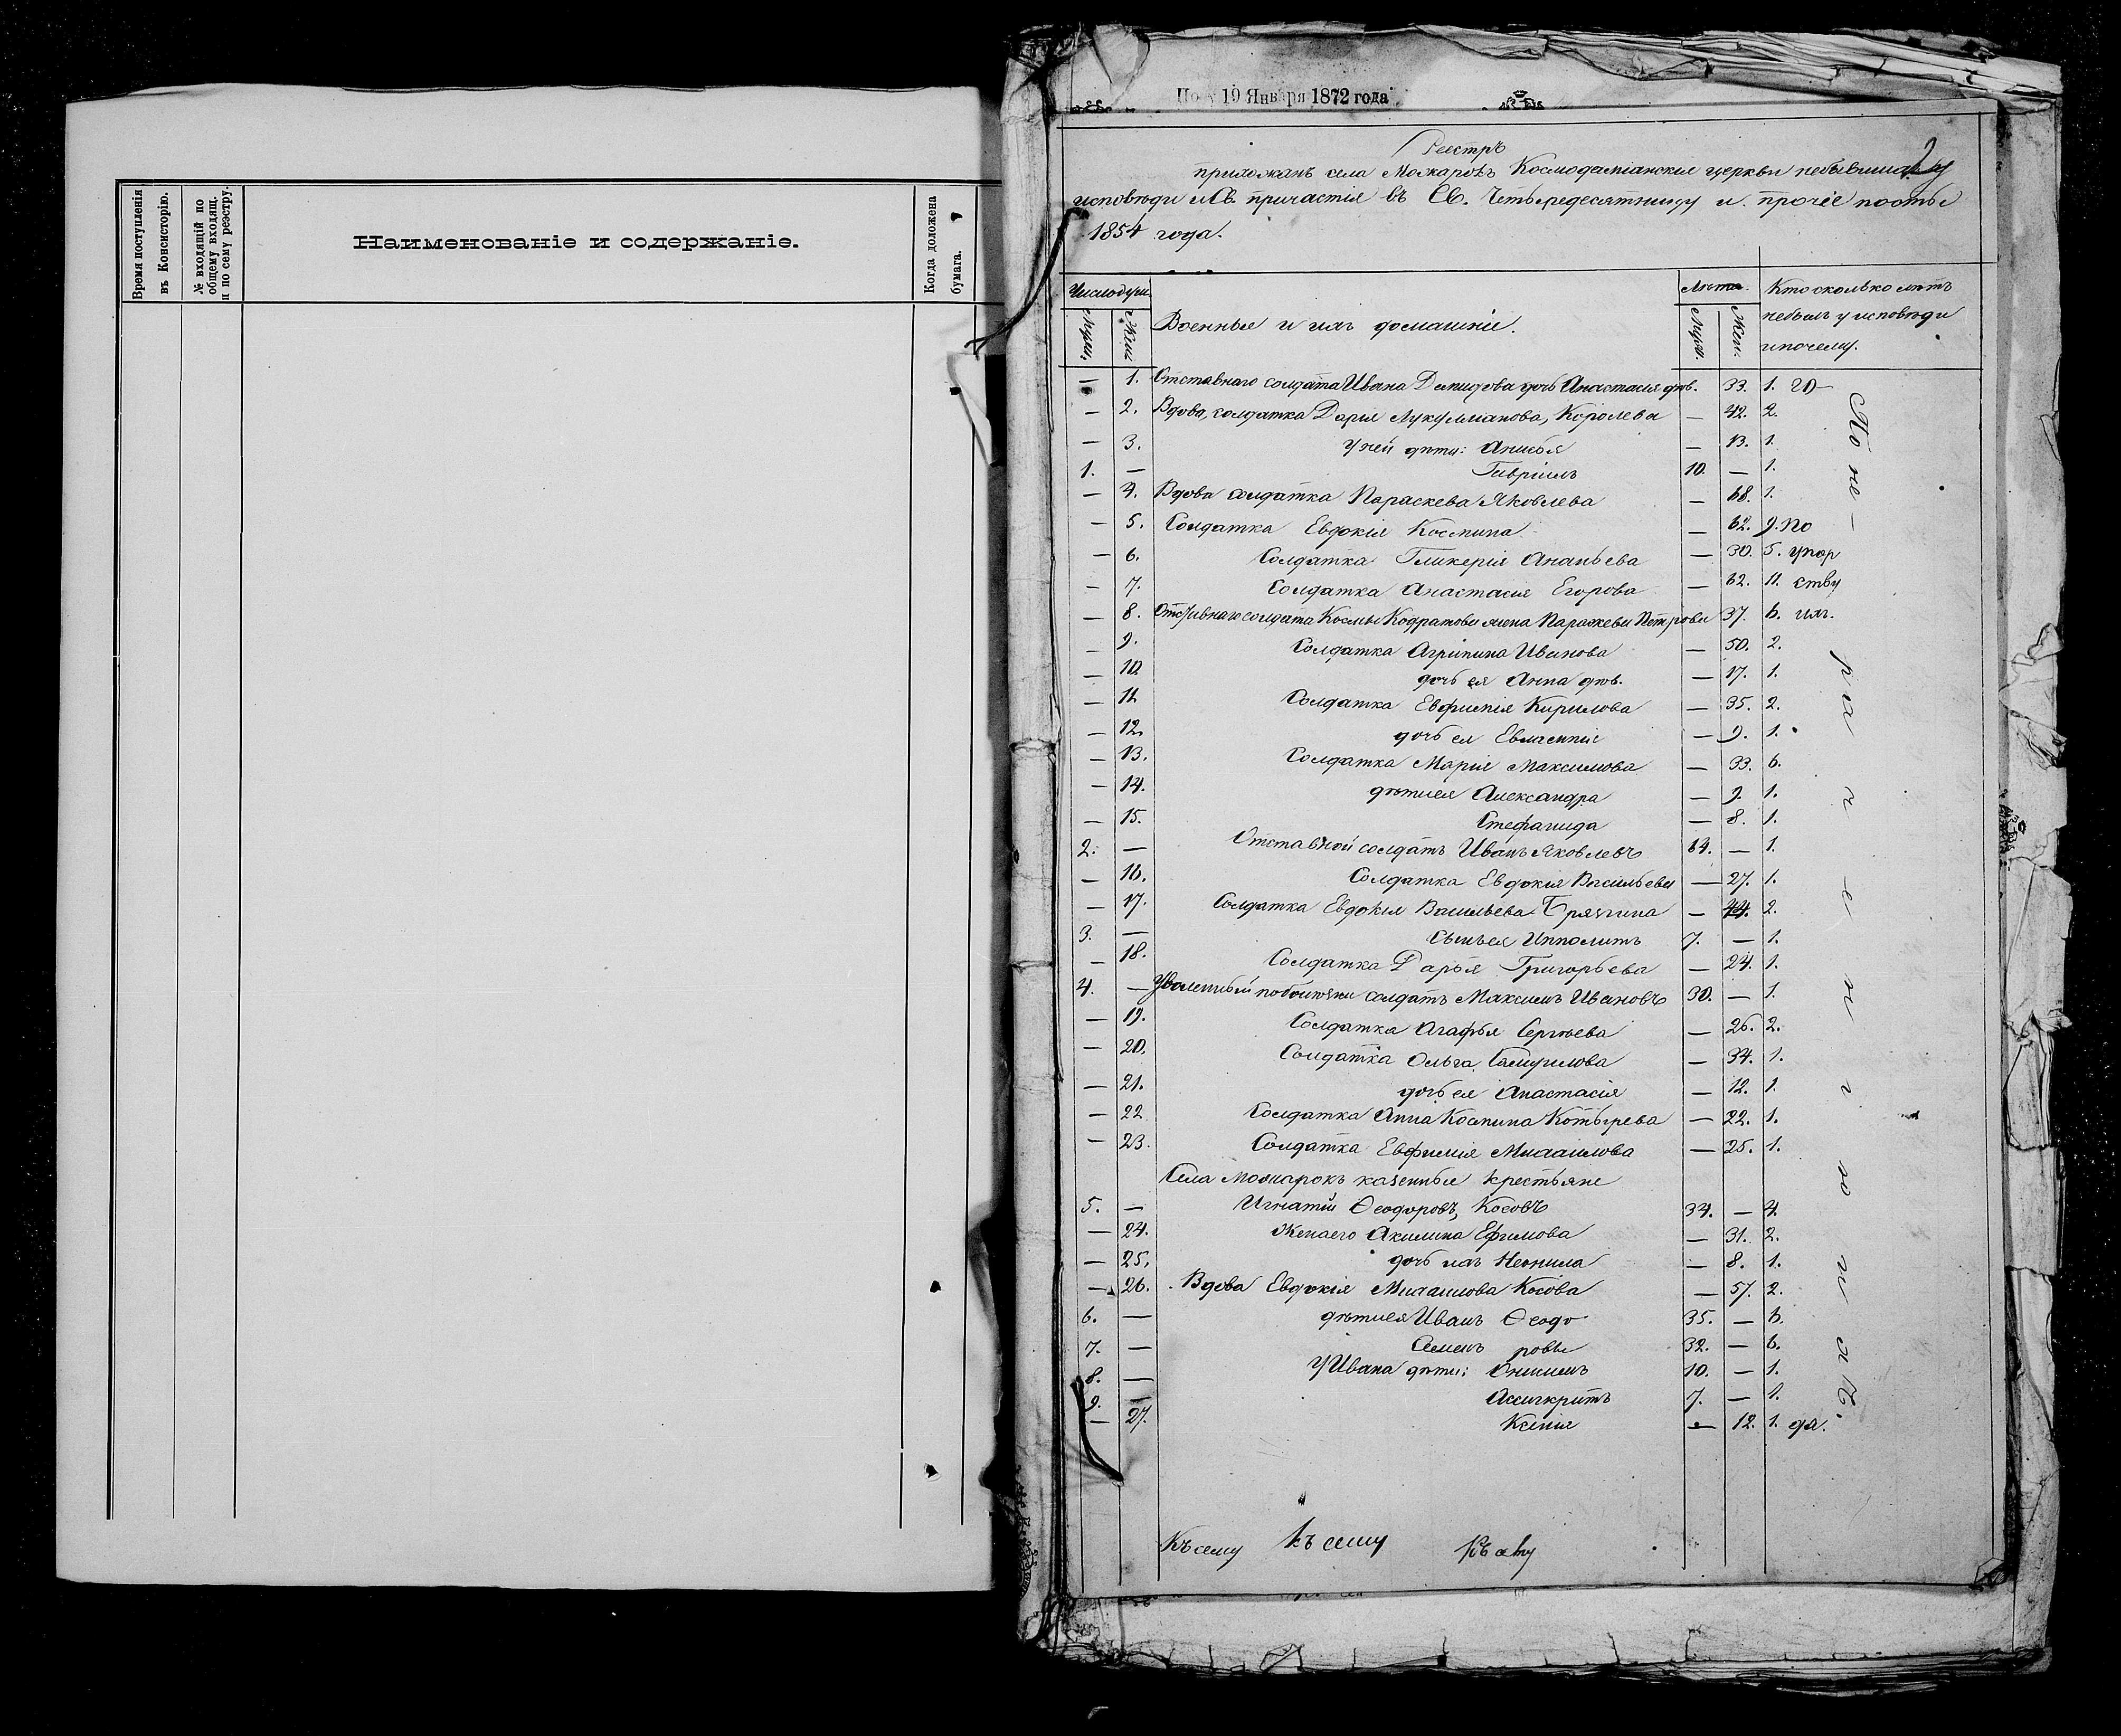 Время поступленія
въ Консисторію.
№ входящій по
общему входящ.
и по сему реестру.
Наименованіе и содержаніе.
Когда доложена
бумага.
19 Января 1872 года
Реестръ
прихожанъ села Можаровъ Космодаміанскія церкви небывшихъ у
исповѣди и Св. причастія въ Св. Четыредесятницу и прочіе посты
1854 года.
Число душ.
Муж.
Жен.
Военные и ихъ домашніе.
Лѣта.
Муж.
Жен.
Кто сколько лѣтъ
небылъ у исповѣди
и почему.
— 1. Отставнаго солдата Ивана Демидова дочь Анастасія дѣв. 33. 1. го—
— 2. Вдова, солдатка Дарья Лукулліанова, Королева — 42. 2.
— 3. у ней дѣти: Анисья — 13. 1.
1. — Гавріилъ 10. — 1.
— 4. Вдова солдатка Параскева Яковлева — 68. 1.
— 5. Солдатка Евдокія Космина — 62. 9. по
— 6. Солдатка Гликерія Ананьева — 30. 5. упор
— 7. Солдатка Анастасія Егорова — 62. 11. ству
— 8. Отставнаго солдата Космы Кодратова жена Параскева Петрова 37. 6. ихъ.
— 9. Солдатка Агрипина Иванова — 50. 2.
— 10. дочь ея Анна дѣв. — 17. 1.
— 11. Солдатка Евфимія Кирилова — 35. 2.
— 12. дочь ея Евлампія — 9. 1.
— 13. Солдатка Марія Максимова — 33. 6.
— 14. дѣти ея Александра — 9. 1.
— 15. Стефанида — 8. 1.
2. — Отставной солдатъ Иванъ Яковлевъ 64. — 1.
— 16. Солдатка Евдокія Васильева — 27. 1.
— 17. Солдатка Евдокія Васильева Брязгина — 44. 2.
3. — Сынъ ея Ипполитъ 7. — 1.
— 18. Солдатка Дарья Григорьева — 24. 1.
4. — Уволенный по болѣзни солдатъ Максимъ Ивановъ 30. — 1.
— 19. Солдатка Агафья Сергѣева — 26. 2.
— 20. Солдатка Ольга Самуилова — 34. 1.
— 21. дочь ея Анастасія — 12. 1.
— 22. Солдатка Анна Космина Котырева — 22. 1.
— 23. Солдатка Евфимія Михаилова — 25. 1.
Села Можарокъ казенные крестьяне
5. — Игнатій Ѳеодоровъ, Косовъ 34. — 4.
— 24. Жена его Акилина Ефимова — 31. 2.
— 25. дочь ихъ Неонила — 8. 1.
— 26. Вдова Евдокія Михаилова Косова — 57. 2.
6. — дѣти ея Иванъ Ѳеодо 35. — 6.
7. — Семенъ ровы 32. — 6.
8. — У Ивана дѣти: Онисимъ 10. — 1.
9. — Асигкритъ 7. — 1.
— 27. Ксенія — 12. 1. да.
По не-
ра ч е н і ю и х ъ.
Къ сему Къ сему